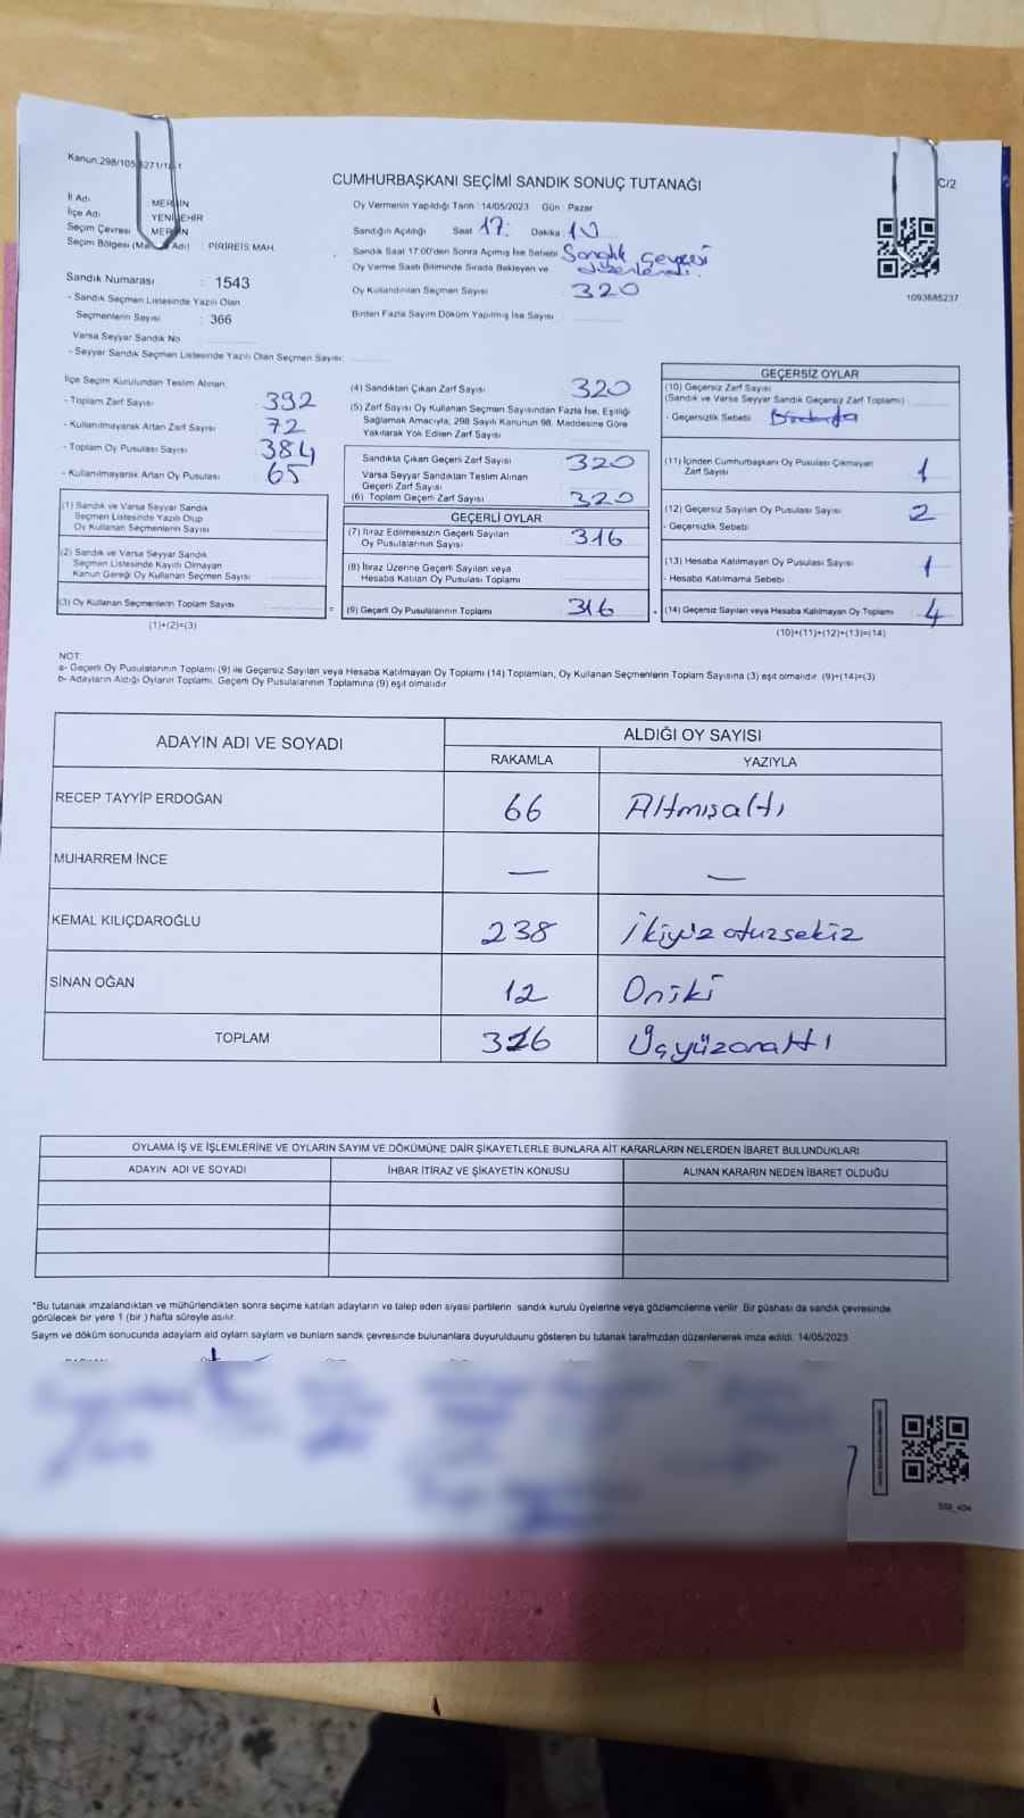 Kanun:298/105
CUMHURBAŞKANI SEÇİMİ SANDIK SONUÇ TUTANAĞI
C/2
İl Adı MERSİN
İlçe Adı YENİŞEHİR
Seçim Çevresi MERSİN
Seçim Bölgesi PİRİREİS MAH.
Oy Vermenin Yapıldığı Tarih : 14/05/2023 Gün : Pazar
Sandığın Açıldığı Saat 17: Dakika 10
Sandık Saat 17:00'den Sonra Açılmış İse Sebebi Sandık çevresi düzenlendi.
Oy Verme Saati Bitiminde Sırada Bekleyen ve
Oy Kullandırılan Seçmen Sayısı 320
Birden Fazla Sayım Döküm Yapılmış İse Sayısı
1093685237
Sandık Numarası : 1543
- Sandık Seçmen Listesinde Yazılı Olan
Seçmenlerin Sayısı : 366
Varsa Seyyar Sandık No
- Seyyar Sandık Seçmen Listesinde Yazılı Olan Seçmen Sayısı:
İlçe Seçim Kurulundan Teslim Alınan;
- Toplam Zarf Sayısı 392
- Kullanılmayarak Artan Zarf Sayısı 72
- Toplam Oy Pusulası Sayısı 384
- Kullanılmayarak Artan Oy Pusulası 65
(1) Sandık ve Varsa Seyyar Sandık
Seçmen Listesinde Yazılı Olup
Oy Kullanan Seçmenlerin Sayısı
(2) Sandık ve Varsa Seyyar Sandık
Seçmen Listesinde Kayıtlı Olmayan
Kanun Gereği Oy Kullanan Seçmen Sayısı
(3) Oy Kullanan Seçmenlerin Toplam Sayısı
(1)+(2)=(3)
(4) Sandıktan Çıkan Zarf Sayısı 320
(5) Zarf Sayısı Oy Kullanan Seçmen Sayısından Fazla İse, Eşitliği
Sağlamak Amacıyla, 298 Sayılı Kanunun 98. Maddesine Göre
Yakılarak Yok Edilen Zarf Sayısı
Sandıkta Çıkan Geçerli Zarf Sayısı 320
Varsa Seyyar Sandıktan Teslim Alınan
Geçerli Zarf Sayısı
(6) Toplam Geçerli Zarf Sayısı 320
GEÇERLİ OYLAR
(7) İtiraz Edilmeksizin Geçerli Sayılan
Oy Pusulalarının Sayısı 316
(8) İtiraz Üzerine Geçerli Sayılan veya
Hesaba Katılan Oy Pusulası Toplamı
= (9) Geçerli Oy Pusulalarının Toplamı 316
GEÇERSİZ OYLAR
(10) Geçersiz Zarf Sayısı
(Sandık ve Varsa Seyyar Sandık Geçersiz Zarf Toplamı)
- Geçersizlik Sebebi
(11) İçinden Cumhurbaşkanı Oy Pusulası Çıkmayan
Zarf Sayısı 1
(12) Geçersiz Sayılan Oy Pusulası Sayısı 2
- Geçersizlik Sebebi
(13) Hesaba Katılmayan Oy Pusulası Sayısı 1
- Hesaba Katılmama Sebebi
(14) Geçersiz Sayılan veya Hesaba Katılmayan Oy Toplamı 4
(10)+(11)+(12)+(13)=(14)
NOT:
a- Geçerli Oy Pusulalarının Toplamı (9) ile Geçersiz Sayılan veya Hesaba Katılmayan Oy Toplamı (14) Toplamları, Oy Kullanan Seçmenlerin Toplam Sayısına (3) eşit olmalıdır. (9)+(14)=(3)
b- Adayların Aldığı Oyların Toplamı, Geçerli Oy Pusulalarının Toplamına (9) eşit olmalıdır
ADAYIN ADI VE SOYADI
ALDIĞI OY SAYISI
RAKAMLA YAZIYLA
RECEP TAYYİP ERDOĞAN 66 Altmışaltı
MUHARREM İNCE — —
KEMAL KILIÇDAROĞLU 238 İkiyüz otuzsekiz
SİNAN OĞAN 12 Oniki
TOPLAM 316 Üçyüzonaltı
OYLAMA İŞ VE İŞLEMLERİNE VE OYLARIN SAYIM VE DÖKÜMÜNE DAİR ŞİKAYETLERLE BUNLARA AİT KARARLARIN NELERDEN İBARET BULUNDUKLARI
ADAYIN ADI VE SOYADI İHBAR İTİRAZ VE ŞİKAYETİN KONUSU ALINAN KARARIN NEDEN İBARET OLDUĞU
*Bu tutanak imzalandıktan ve mühürlendikten sonra seçime katılan adayların ve talep eden siyasi partilerin sandık kurulu üyelerine veya gözlemcilerine verilir. Bir nüshası da sandık çevresinde
görülecek bir yere 1 (bir ) hafta süreyle asılır.
Sayım ve döküm sonucunda adayların aldığı oyların sayıları ve bunların sandık çevresinde bulunanlara duyurulduğunu gösteren bu tutanak tarafımızdan düzenlenerek imza edildi. 14/05/2023